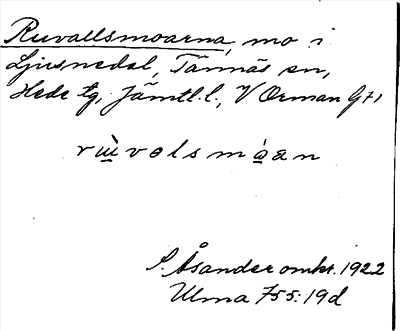 Ruvallsmoarna, mo i
Ljusnedal, Tännäs sn,
Hede tg, Jämtl. l., V Orman G71
rɯ̀volsmo̱an
S. Åsander omkr. 1922
Ulma 755:19d